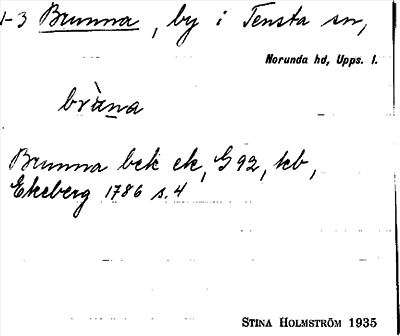 1-3 Brunna, by i Tensta sn,
Norunda hd, Upps. l.
bràna
Brunna bek ek, G 92, kb,
Ekeberg 1786 s. 4
STINA HOLMSTRÖM 1935